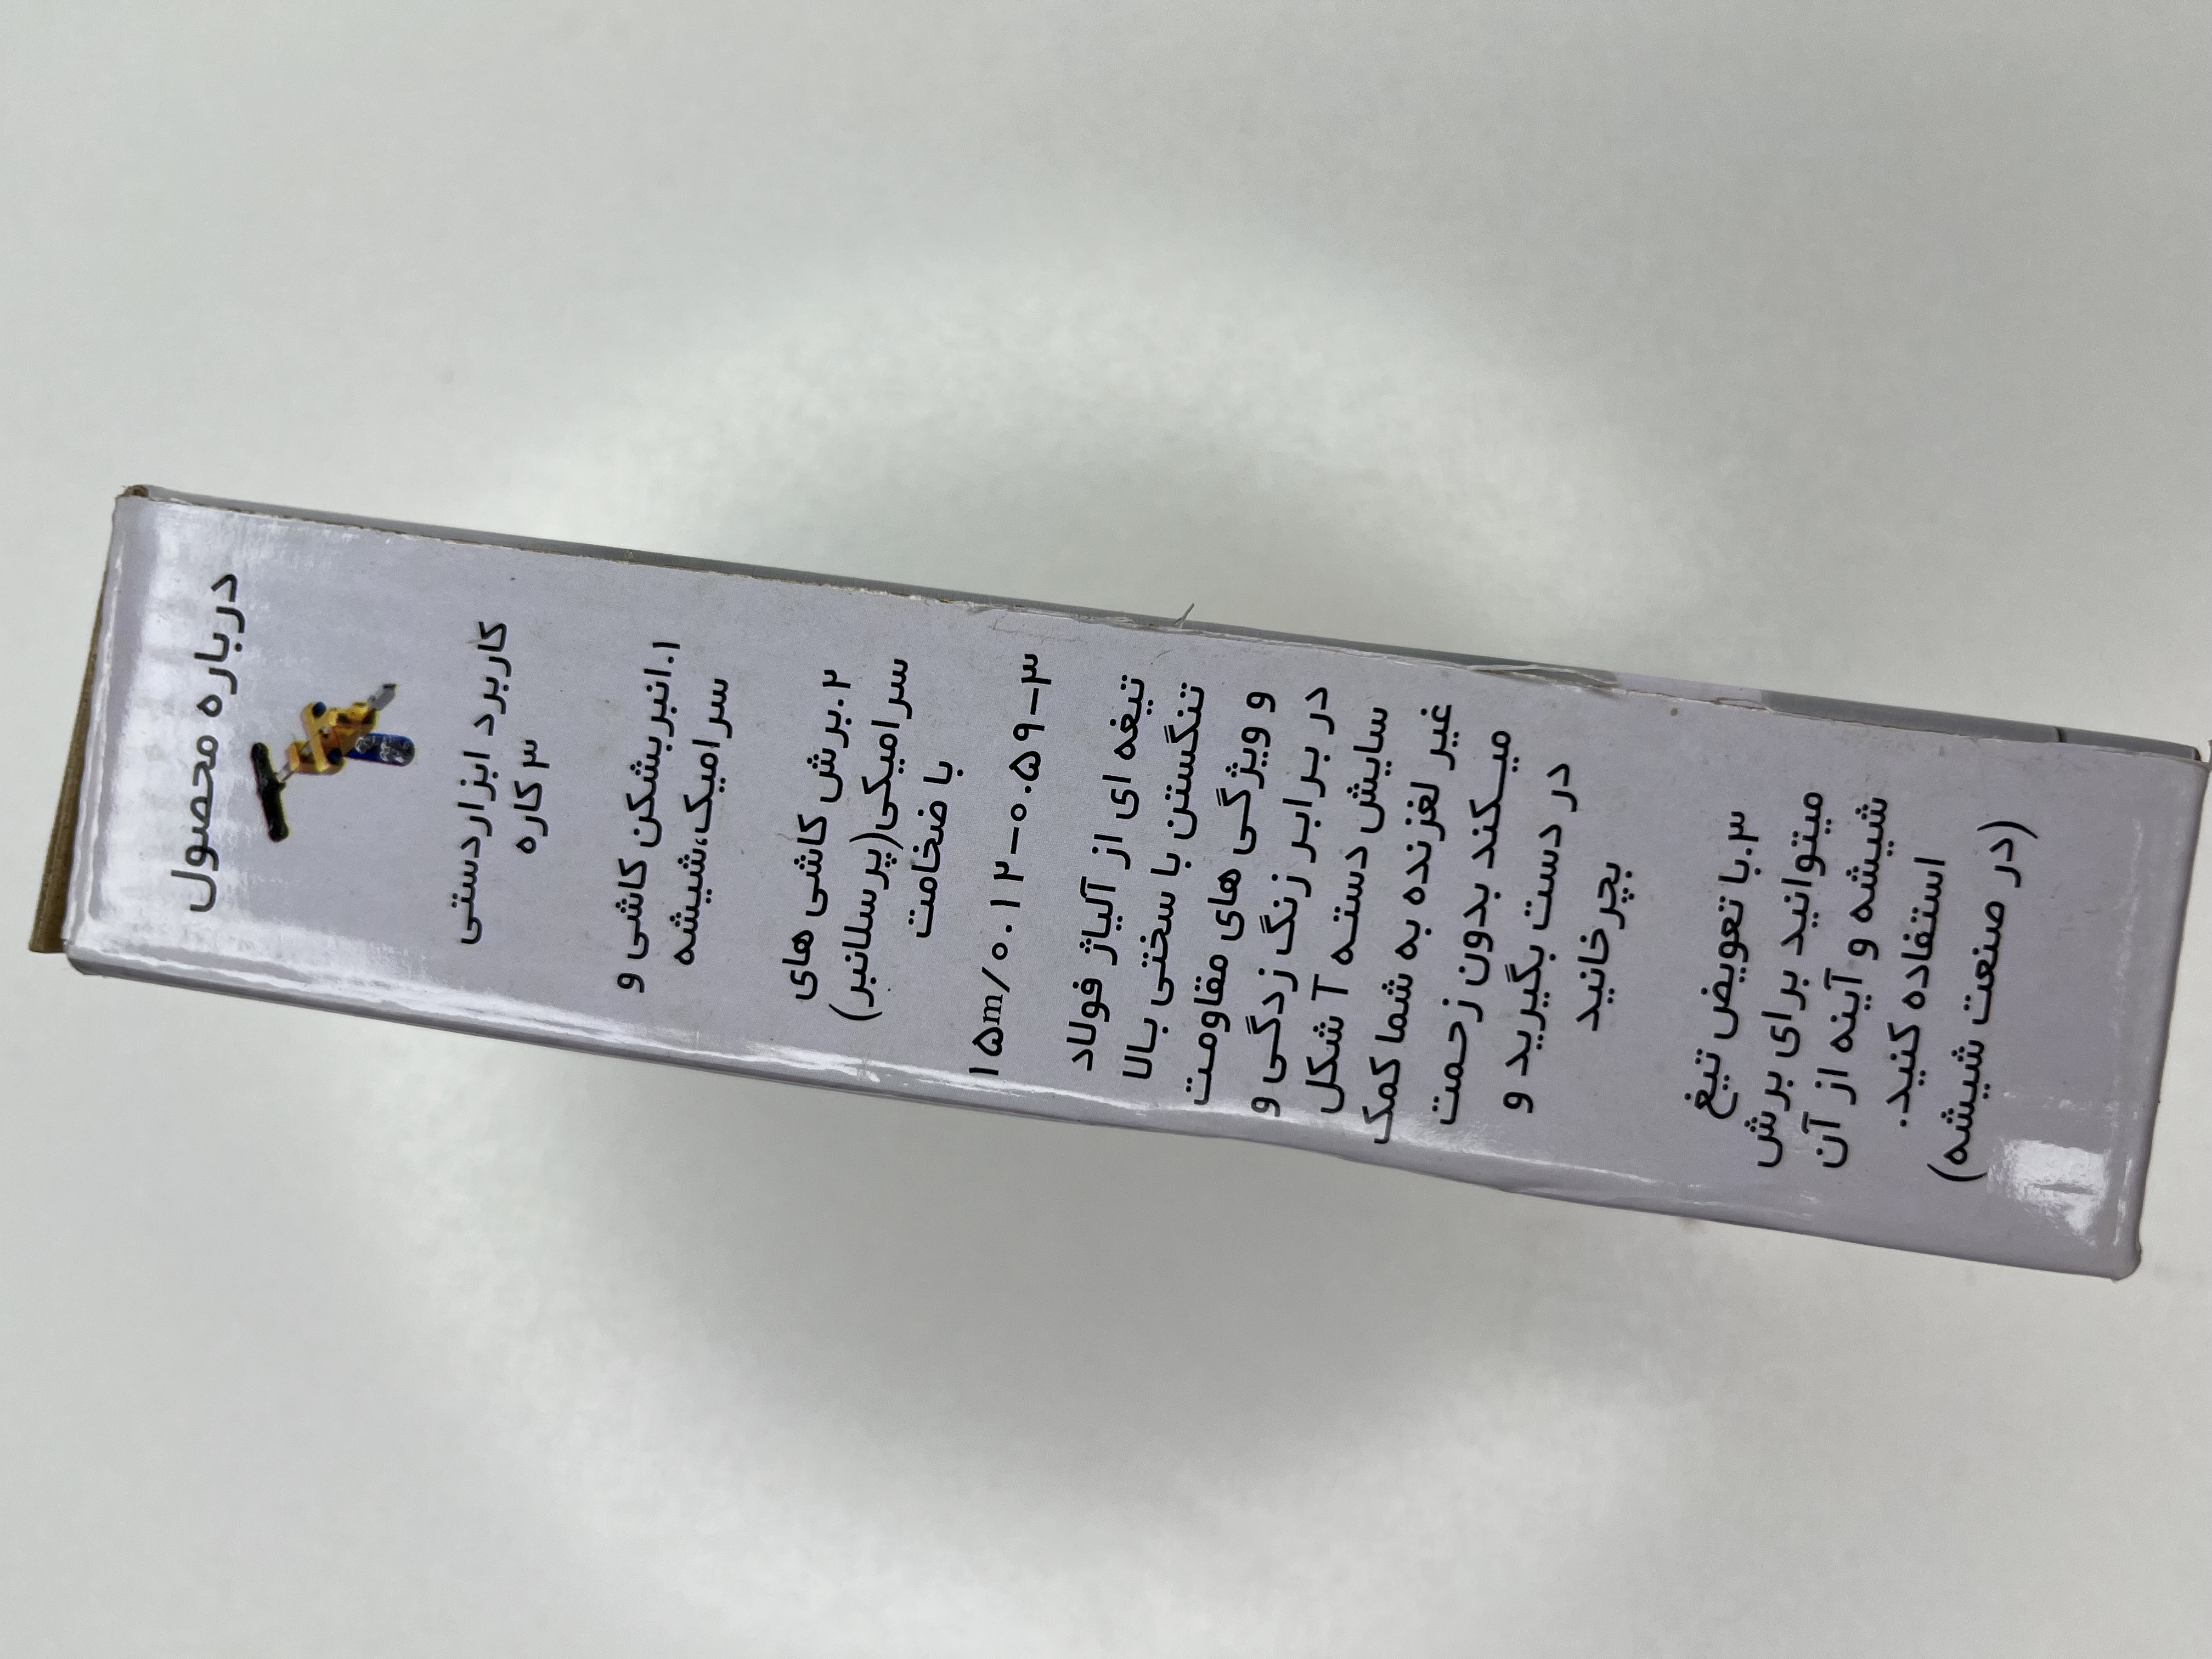 درباره محصول
کاربرد ابزاردستی
۳ کاره
۱.انبربشکن کاشی و
سرامیک،شیشه
۲.برش کاشی های
سرامیکی(پرسلانبر)
با ضخامت
۱۵m/۰.۱۲-۰.۵۹-۳
تیغه ای از آلیاژ فولاد
تنگستن با سختی بالا
و ویژگی های مقاومت
در برابر زنگ زدگی و
سایش دسته آ شکل
غیر لغزنده به شما کمک
میکند بدون زحمت
در دست بگیرید و
بچرخانید
۳.با تعویض تیغ
میتوانید برای برش
شیشه و آینه از آن
استفاده کنید.
(در صنعت شیشه)